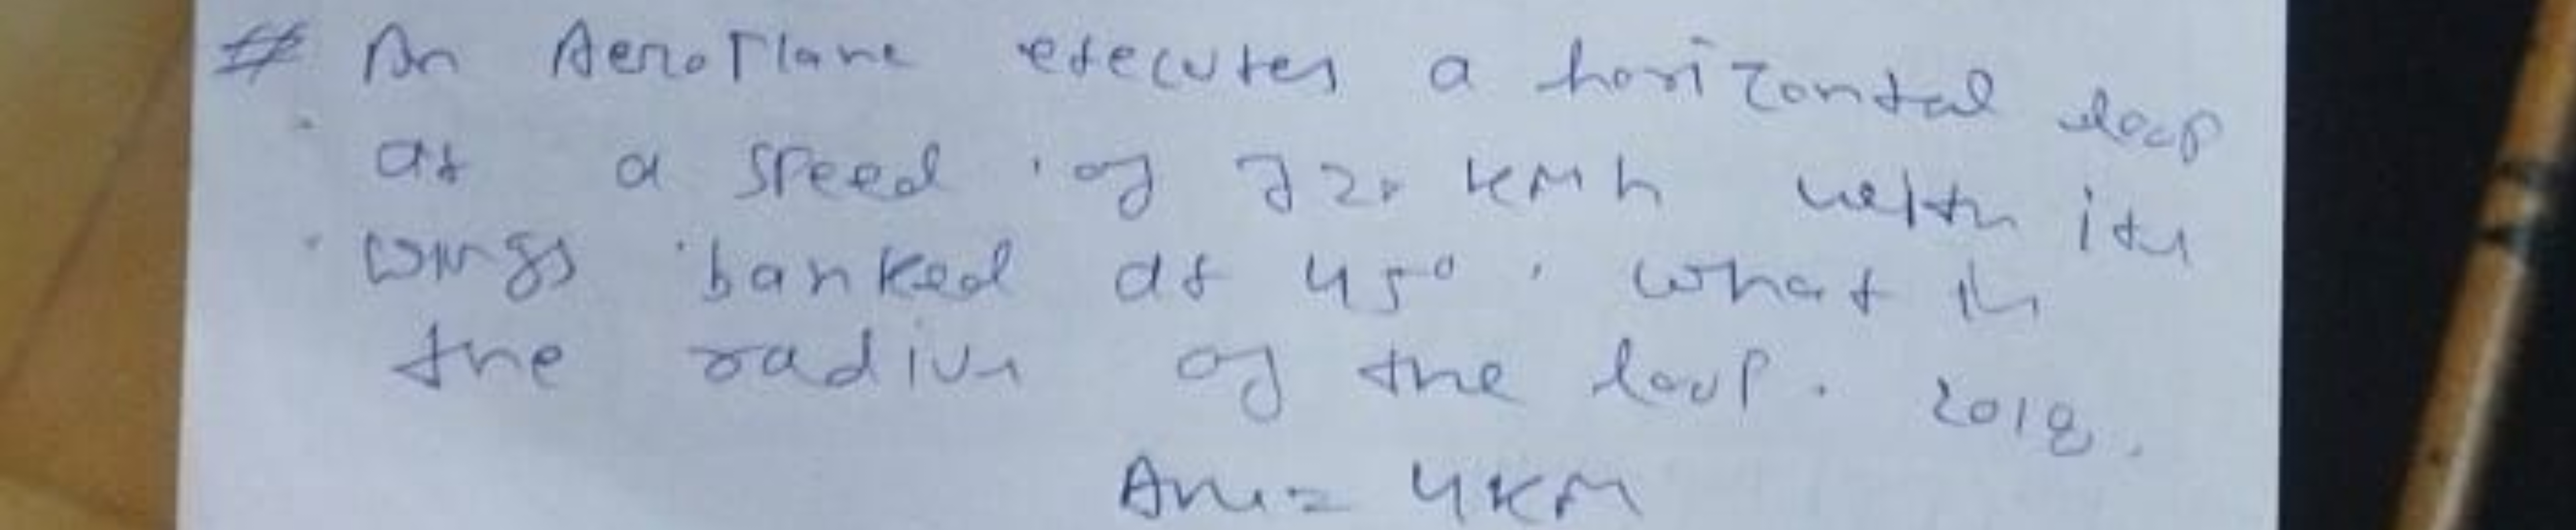 # An Aeroplane executes a horizontal loop
at a speed of 720 kmh with its
wings banked at 45°. What is
the radius of the loop. 2018.
Ans = 4km